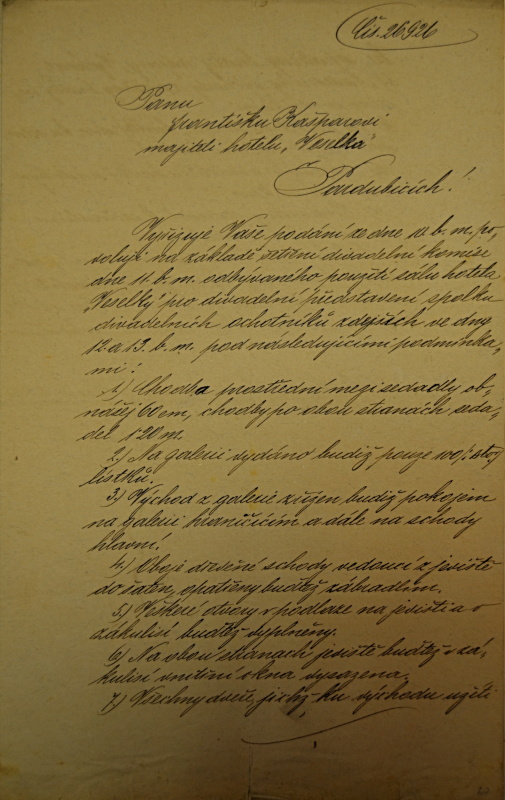 Čís. 26926
Panu
Františku Kašparovi
majiteli hotelu „Veselka“
v Pardubicích!
Vyřizuje Vaše podání ze dne 10. b. m. po-
voluji na základě šetření divadelní komise
dne 11. b. m. odbývaného použití sálu hotelu
„Veselky“ pro divadelní představení spolku
divadelních ochotníků zdejších ve dny
12 a 13. b. m. pod následujícími podmínka-
mi:
1) Chodba prostřední mezi sedadly ob-
nášej 60 cm, chodby po obou stranách seda-
del 1.20 m.
2) Na galerii vydáno budiž pouze 100
lístků.
3) Východ z galerie zřízen budiž pokojem
na galerii hraničícím a dále na schody
hlavní.
4) Oboje dřevěné schody vedoucí z jeviště
do šaten, opatřeny buďtež zábradlím.
5) Veškeré otvory v podlaze na jevišti a v
zákulisí buďtež vyplněny.
6) Na obou stranách jeviště buďtež v zá-
kulisí vnitřní okna vysazena.
7) Všechny dveře, jichž ku východu užití